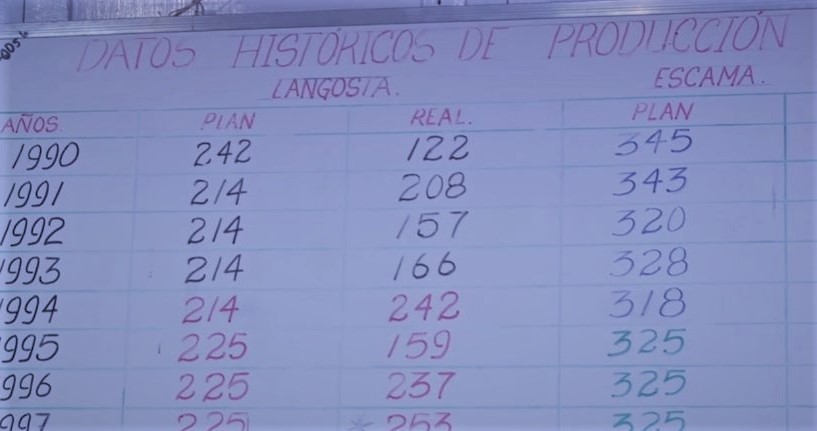 DATOS HISTÓRICOS DE PRODUCCIÓN
LANGOSTA. ESCAMA.
AÑOS. PLAN REAL. PLAN
1990 242 122 345
1991 214 208 343
1992 214 157 320
1993 214 166 328
1994 214 242 318
995 225 159 325
996 225 237 325
997 225 * 253 325